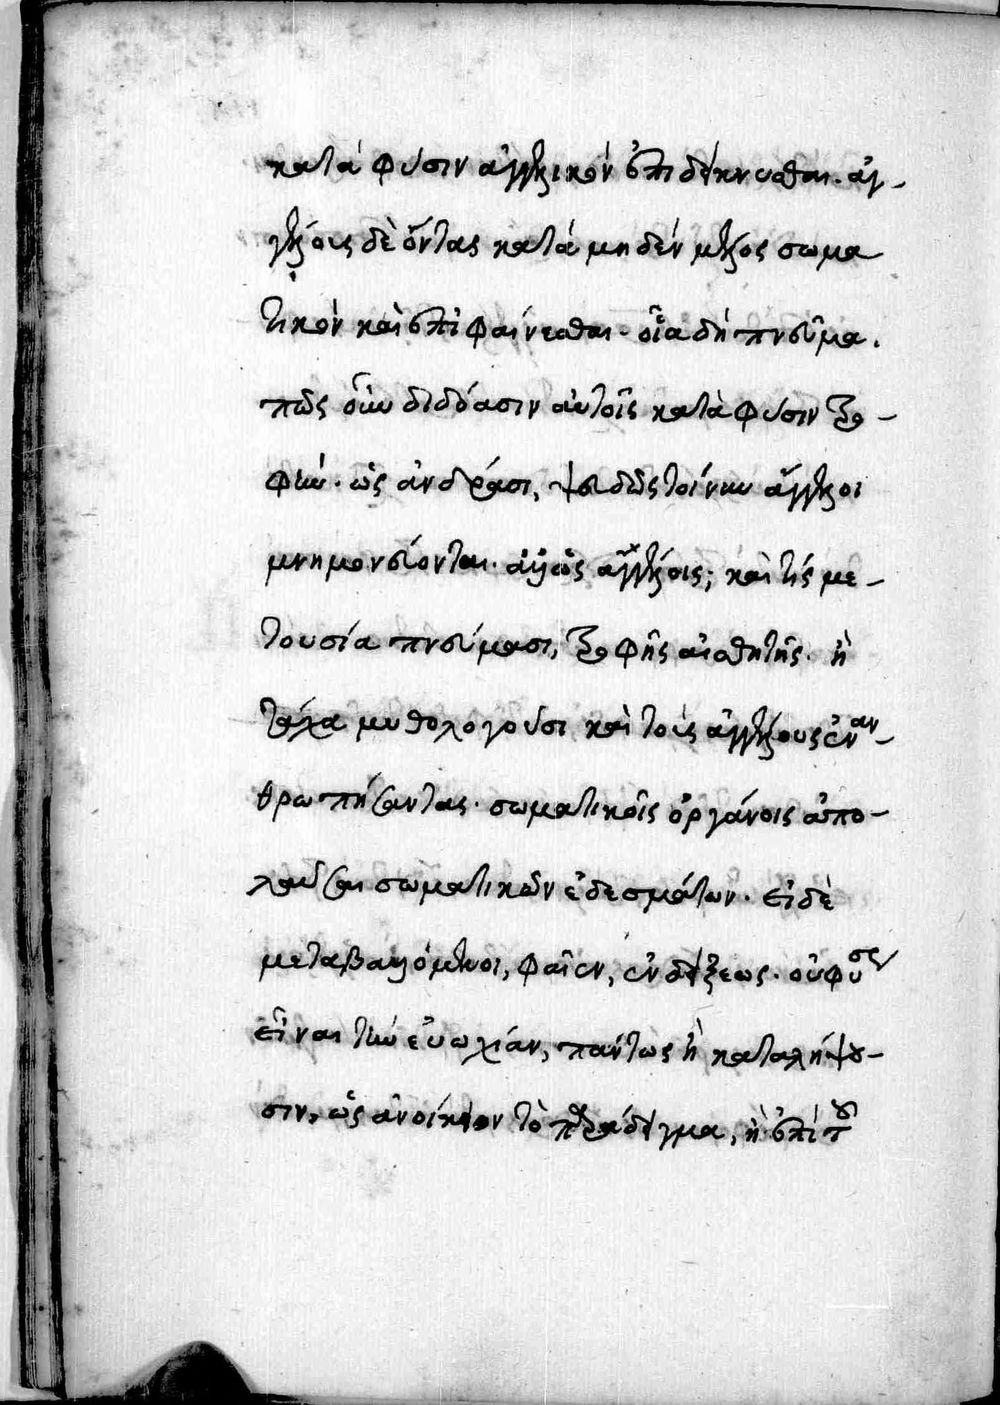 κατὰ φύσιν ἀγγελικὸν ἐπιδείκνυσθαι. ἀγ-
γέλοις δὲ ὄντας κατὰ μηδὲν μέλος σωμα
τικὸν καὶ ἐπιφαίνεσθαι. οἷα δὴ πνεῦμα.
πῶς οὖν διδόασιν αὐτοῖς κατὰ φύσιν τρο-
φὴν. ὡς ἀνδράσι, ψευδῶς τοίνυν ἄγγελοι
μνημονεύονται. ἀλλ' ὡς ἀγγέλοις; καὶ τίς με-
τουσία πνεύμασι, τροφῆς αἰσθητῆς. ἢ
τάχα μυθολογοῦσι καὶ τοὺς ἀγγέλους ἐναν-
θρωπήσαντας. σωματικοῖς ὀργάνοις ἀπο-
λαῦσαι σωματικῶν ἐδεσμάτων. εἰ δὲ
μεταβαλλόμενοι, φασὶν, ἐνδείξεως. οὐ φύσεως
εἶναι τὴν εὐωχίαν, πάντως ἢ καταλήψου-
σιν, ὡς ἀνοίκειον τὸ παράδειγμα, ἢ ἐπὶ τοῦ